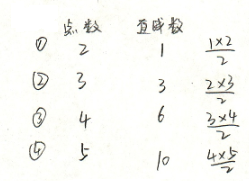 点数 直线数
① 2 1 1×2/2
② 3 3 2×3/2
③ 4 6 3×4/2
④ 5 10 4×5/2